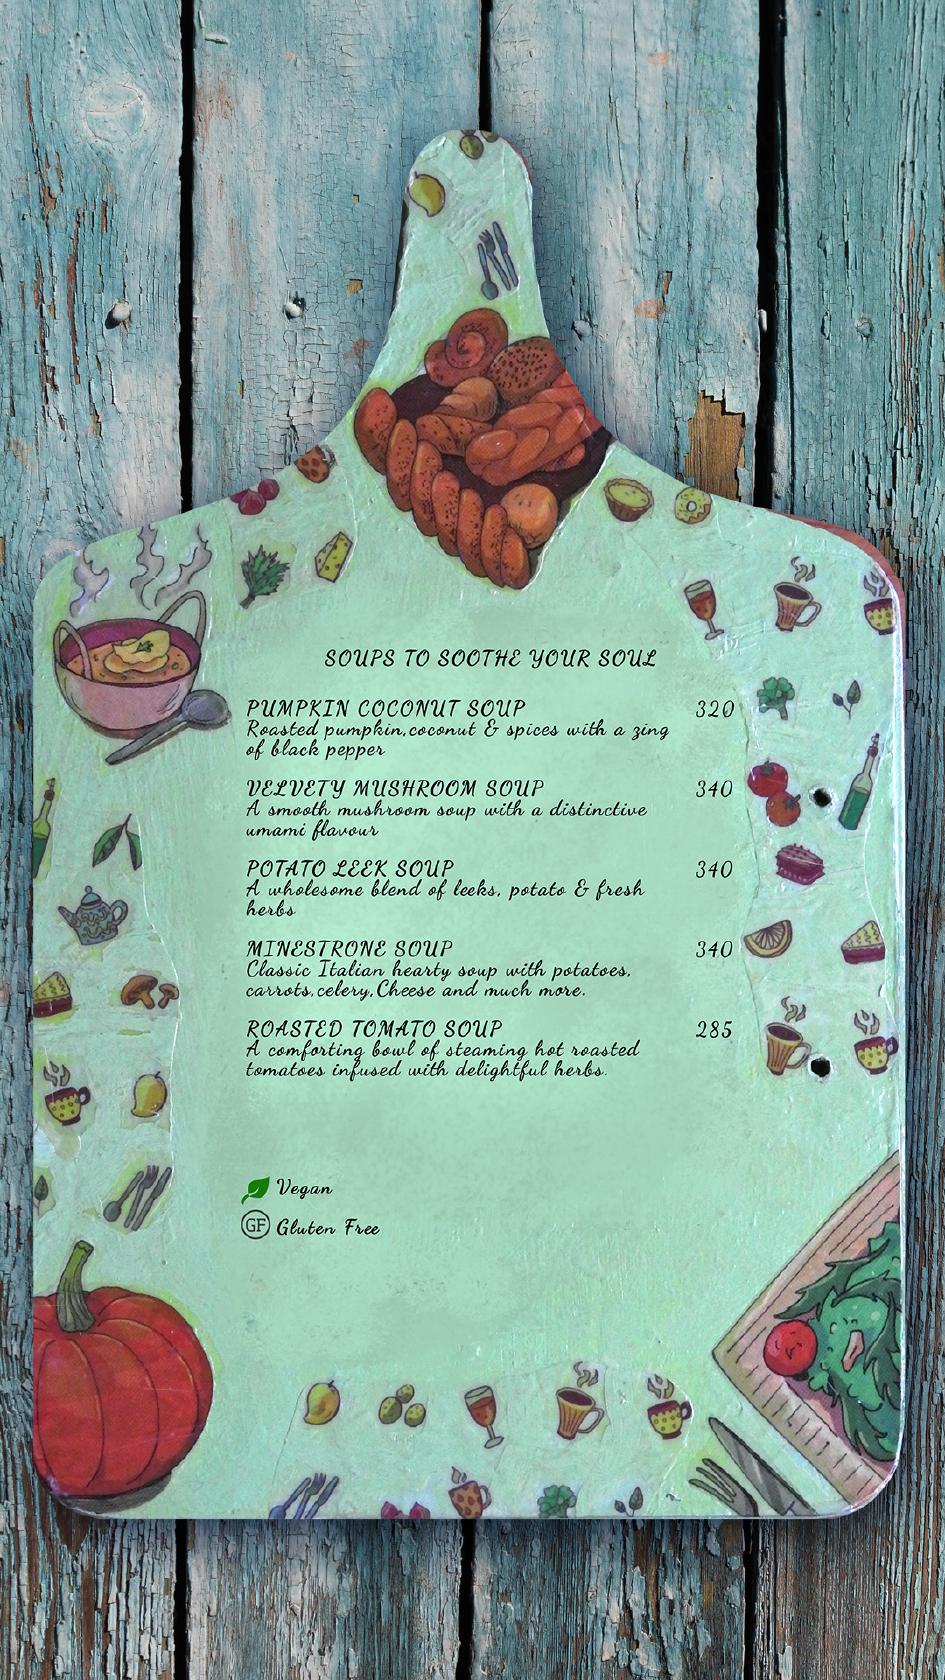 SOUPS TO SOOTHE YOUR SOUL
PUMPKIN COCONUT SOUP 320
Roasted pumpkin,coconut & spices with a zing
of black pepper
VELVETY MUSHROOM SOUP 340
A smooth mushroom soup with a distinctive
umami flavour
POTATO LEEK SOUP 340
A wholesome blend of leeks, potato & fresh
herbs
MINESTRONE SOUP 340
Classic Italian hearty soup with potatoes,
carrots,celery,Cheese and much more.
ROASTED TOMATO SOUP 285
A comforting bowl of steaming hot roasted
tomatoes infused with delightful herbs.
Vegan
GF Gluten Free